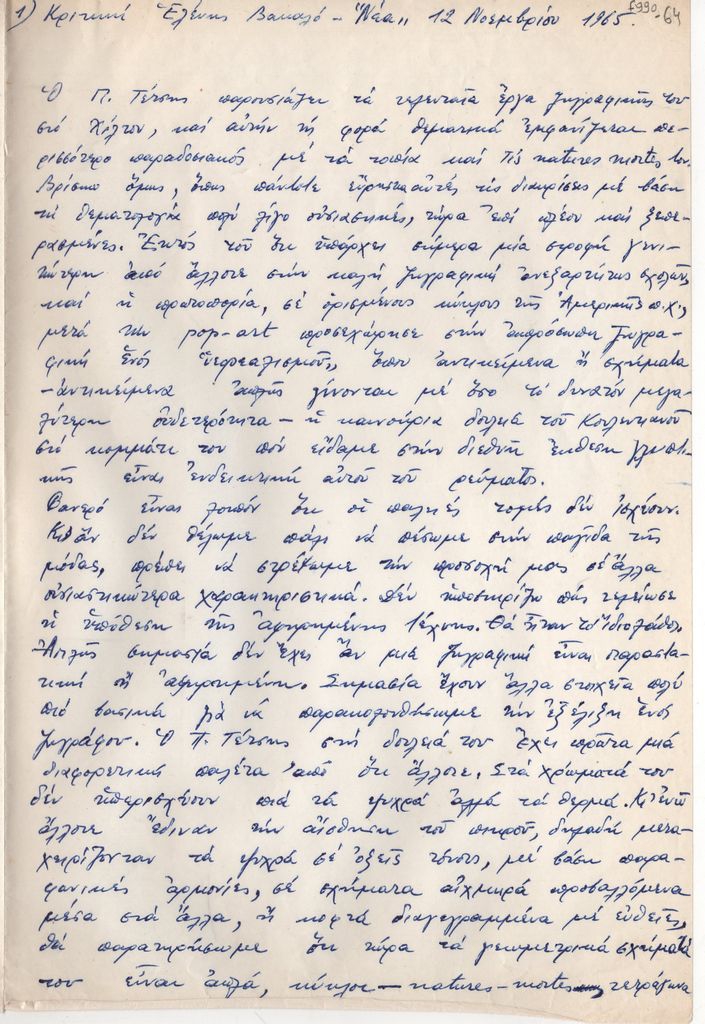 1) Κριτική Ἑλένης Βακαλό - "Νέα" 12 Νοεμβρίου 1965.
F990-64
Ὁ Π. Τέτσης παρουσιάζει τά τελευταῖα ἔργα ζωγραφικῆς του
στό Χίλτον, καί αὐτήν τή φορά θεματικά ἐμφανίζεται πε-
ρισσότερο παραδοσιακός μέ τά τοπία καί τίς natures mortes του.
Βρίσκω ὅμως, ὅπως πάντοτε τίς διακρίσεις μέ βάση
τή θεματολογία πολύ λίγο οὐσιαστικές, τώρα ἐπί πλέον καί ξεπε-
ρασμένες. Ἐκτός τοῦ ὅτι ὑπάρχει σήμερα μία στροφή γενι-
κώτερη ἀπό ἄλλοτε στήν καλή ζωγραφική ἀνεξαρτήτως σχολῆς
καί ἡ πρωτοπορία, σέ ὁρισμένους κύκλους τῆς Ἀμερικῆς π.χ.,
μετά τήν pop-art προσεχώρησε στήν ἀπρόσωπη ζωγρα-
φική ἑνός "νεορεαλισμοῦ" ὅπου ἀντικείμενα ἤ σχήματα
-ἀντικείμενα ἁπλῆς γίνονται μέ ὅσο τό δυνατόν μεγα-
λύτερη οὐδετερότητα - ἡ καινούρια δουλειά τοῦ
στό κομμάτι του πού εἴδαμε στήν διεθνῆ ἔκθεση γλυπτι-
κῆς εἶναι ἐνδεικτική αὐτοῦ τοῦ ρεύματος.
Φανερό εἶναι λοιπόν ὅτι οἱ παλιές τομές δέν ἰσχύουν.
Κι ἄν δέν θέλωμε πάλι νά πέσωμε στήν παγίδα τῆς
μόδας, πρέπει νά στρέψωμε τήν προσοχή μας σέ ἄλλα
οὐσιαστικώτερα χαρακτηριστικά. Δέν ὑποστηρίζω πώς τελείωσε
ἡ ὑπόθεση τῆς ἀφηρημένης τέχνης. Θά ἦταν τό ἴδιο λάθος.
Ἁπλῶς σημασία δέν ἔχει ἄν μιά ζωγραφική εἶναι παραστα-
τική ἤ ἀφηρημένη. Σημασία ἔχουν ἄλλα στοιχεῖα πολύ
πιό βασικά γιά νά παρακολουθήσωμε τήν ἐξέλιξη ἑνός
ζωγράφου. Ὁ Π. Τέτσης στή δουλειά του ἔχει πρῶτα μιά
διαφορετική παλέτα ἀπό ὅτι ἄλλοτε. Στά χρώματά του
δέν ὑπερισχύουν πιά τά ψυχρά ἀλλά τά θερμά. Κι ἐνῶ
ἄλλοτε ἔδιναν τήν αἴσθηση τοῦ πικροῦ, δηλαδή μετα-
χειρίζονταν τά ψυχρά σέ ὀξεῖς τόνους, μέ βάση παρα-
φωνικές ἁρμονίες, σέ σχήματα αἰχμηρά προβαλλόμενα
μέσα στά ἄλλα, ἤ κοφτά διαγεγραμμένα μέ εὐθεῖες,
θά παρατηρήσωμε ὅτι τώρα τά γεωμετρικά σχήματά
του εἶναι ἁπλά, κύκλοι - natures-mortes τετράγωνα